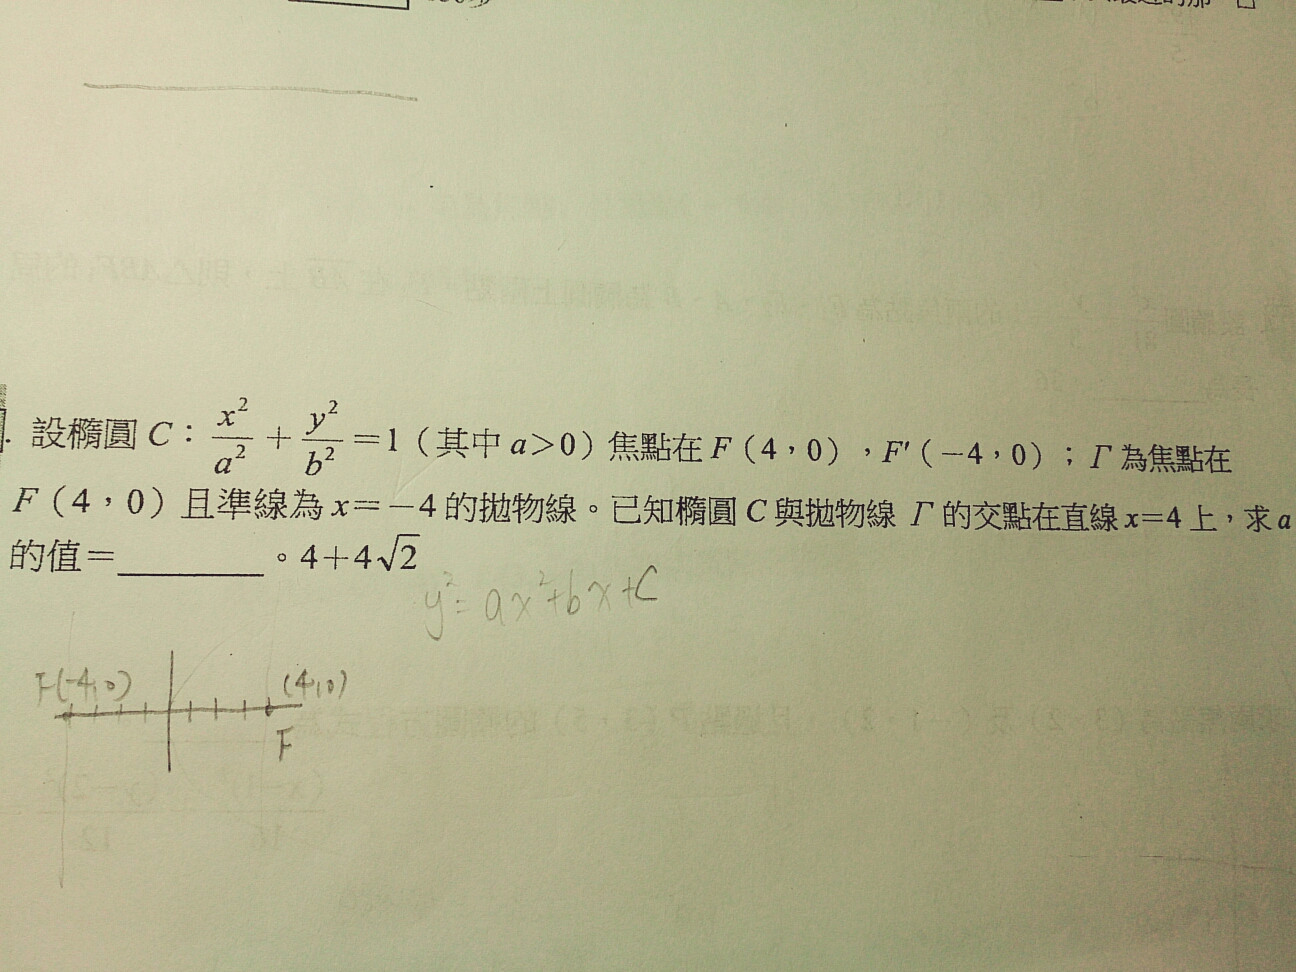 設橢圓 C：x²/a² + y²/b² ＝1（其中 a>0）焦點在 F（4，0），F′（−4，0）；Γ 為焦點在
F（4，0）且準線為 x＝−4 的拋物線。已知橢圓 C 與拋物線 Γ 的交點在直線 x=4 上，求 a
的值＝________。4＋4√2
y²= ax²+bx+C
F(-4,0) (4,0)
F